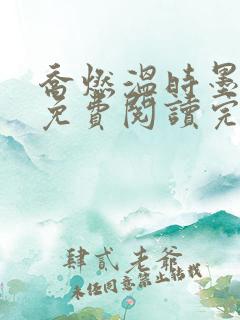 喬燃溫時墨
免費閱讀完
肆貳老爺
未經同意禁止轉載